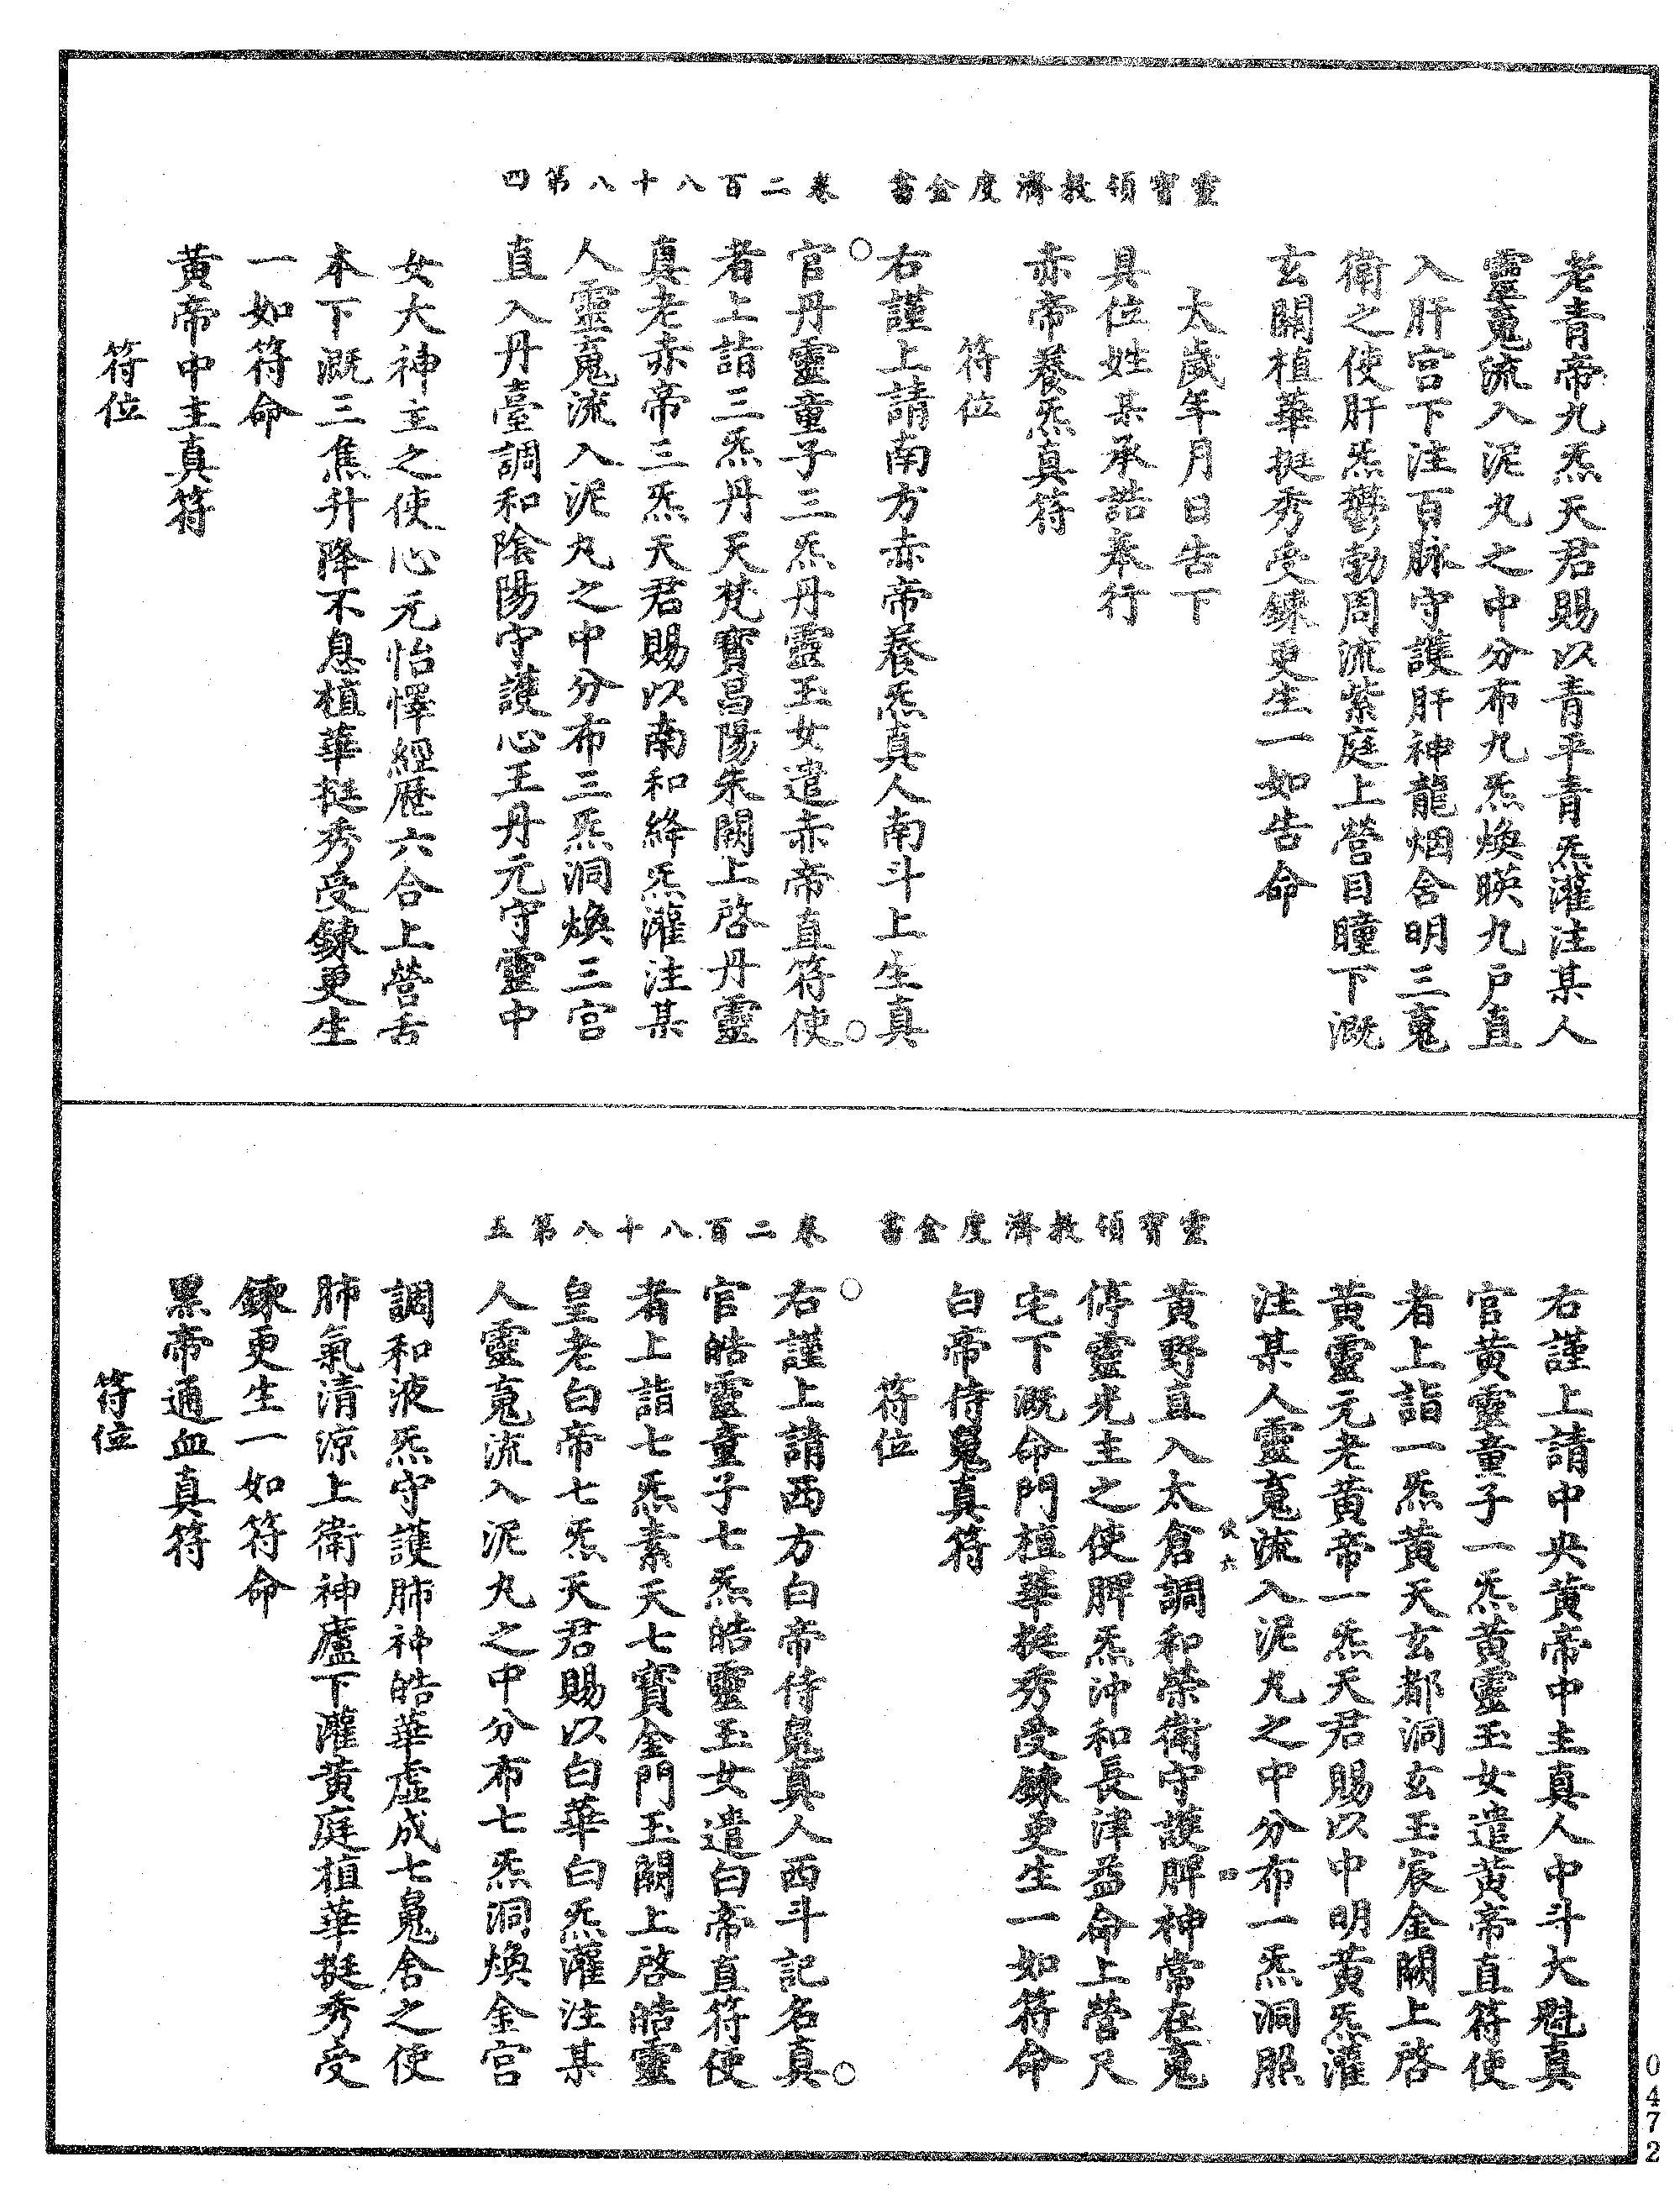 靈寶領教濟度金書　卷二百八十八第四
老青帝九炁天君賜以青平青炁灌注某人
靈䰟流入泥丸之中分布九炁煥暎九戶直
入肝宫下注百脉守護肝神龍烟舍明三䰟
衛之使肝炁鬱勃周流紫庭上營目瞳下溉
玄關植華挺秀受鍊更生一如告命
太歲年月日告下
具位姓某承誥奉行
赤帝養炁真符
符位
右謹上請南方赤帝養炁真人南斗上生真
官丹靈童子三炁丹靈玉女遣赤帝直符使
者上詣三炁丹天梵寶昌陽朱闕上啓丹靈
真老赤帝三炁天君賜以南和絳炁灌注某
人靈䰟流入泥丸之中分布三炁洞煥三宫
直入丹臺調和陰陽守護心王丹元守靈中
女大神主之使心元怡懌經歷六合上營舌
本下溉三焦升降不息植華挺秀受鍊更生
一如符命
黃帝中主真符
符位
靈寶領教濟度金書　卷二百八十八第五
右謹上請中央黃帝中主真人中斗大魁真
官黃靈童子一炁黃靈玉女遣黃帝直符使
者上詣一炁黃天玄都洞玄玉宸金闕上啓
黃靈元老黃帝一炁天君賜以中明黃炁灌
注某人靈䰟流入泥丸之中分布一炁洞照
黃野直入太倉調和榮衛守護脾神常在䰟
停靈光主之使脾炁沖和長津益命上營尺
宅下溉命門植華挺秀受鍊更生一如符命
白帝侍䰟真符
符位
右謹上請西方白帝侍䰟真人西斗記名真
官皓靈童子七炁皓靈玉女遣白帝直符使
者上詣七炁素天七寶金門玉闕上啓皓靈
皇老白帝七炁天君賜以白華白炁灌注某
人靈䰟流入泥丸之中分布七炁洞煥金宫
調和液炁守護肺神皓華虛成七䰟舍之使
肺氣清涼上衛神廬下灌黃庭植華挺秀受
鍊更生一如符命
黑帝通血真符
符位
0472